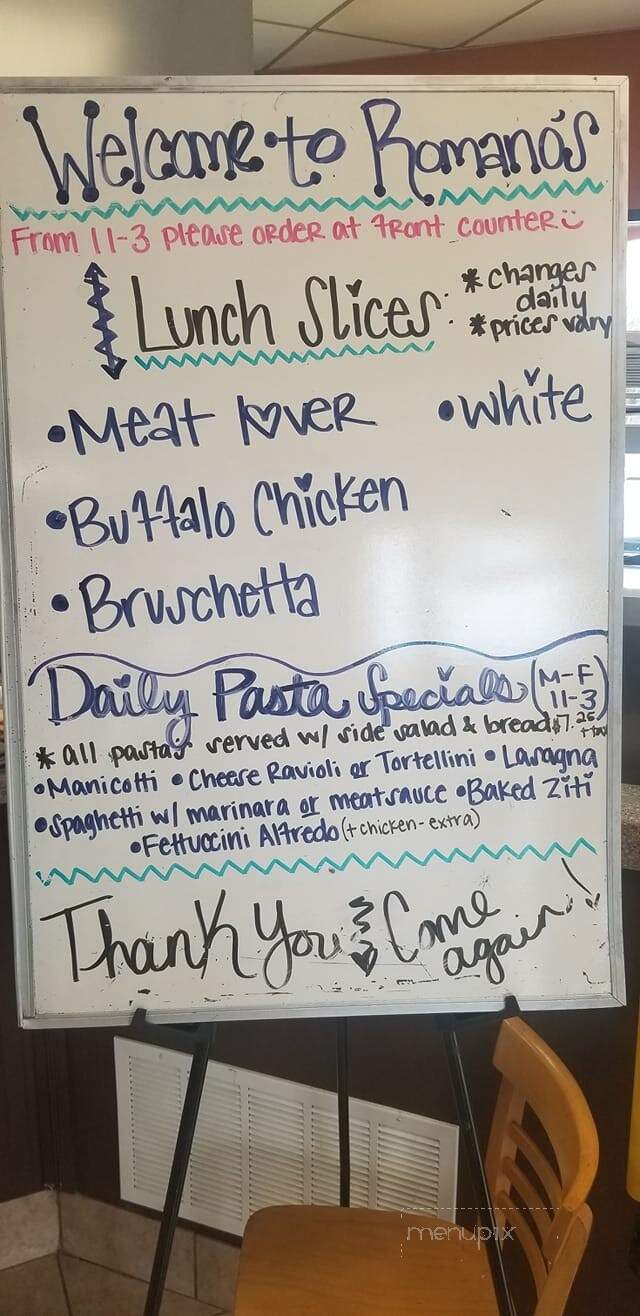 Welcome to Romano's
From 11-3 please order at front counter
Lunch Slices: * changes daily
* prices vary
• Meat lover • White
• Buffalo Chicken
• Bruschetta
Daily Pasta Specials (M-F 11-3)
* all pastas served w/ side salad & bread $7.25 + tax
• Manicotti • Cheese Ravioli or Tortellini • Lasagna
• Spaghetti w/ marinara or meatsauce • Baked Ziti
• Fettuccini Alfredo (+ chicken-extra)
Thank You & Come again!
menupix